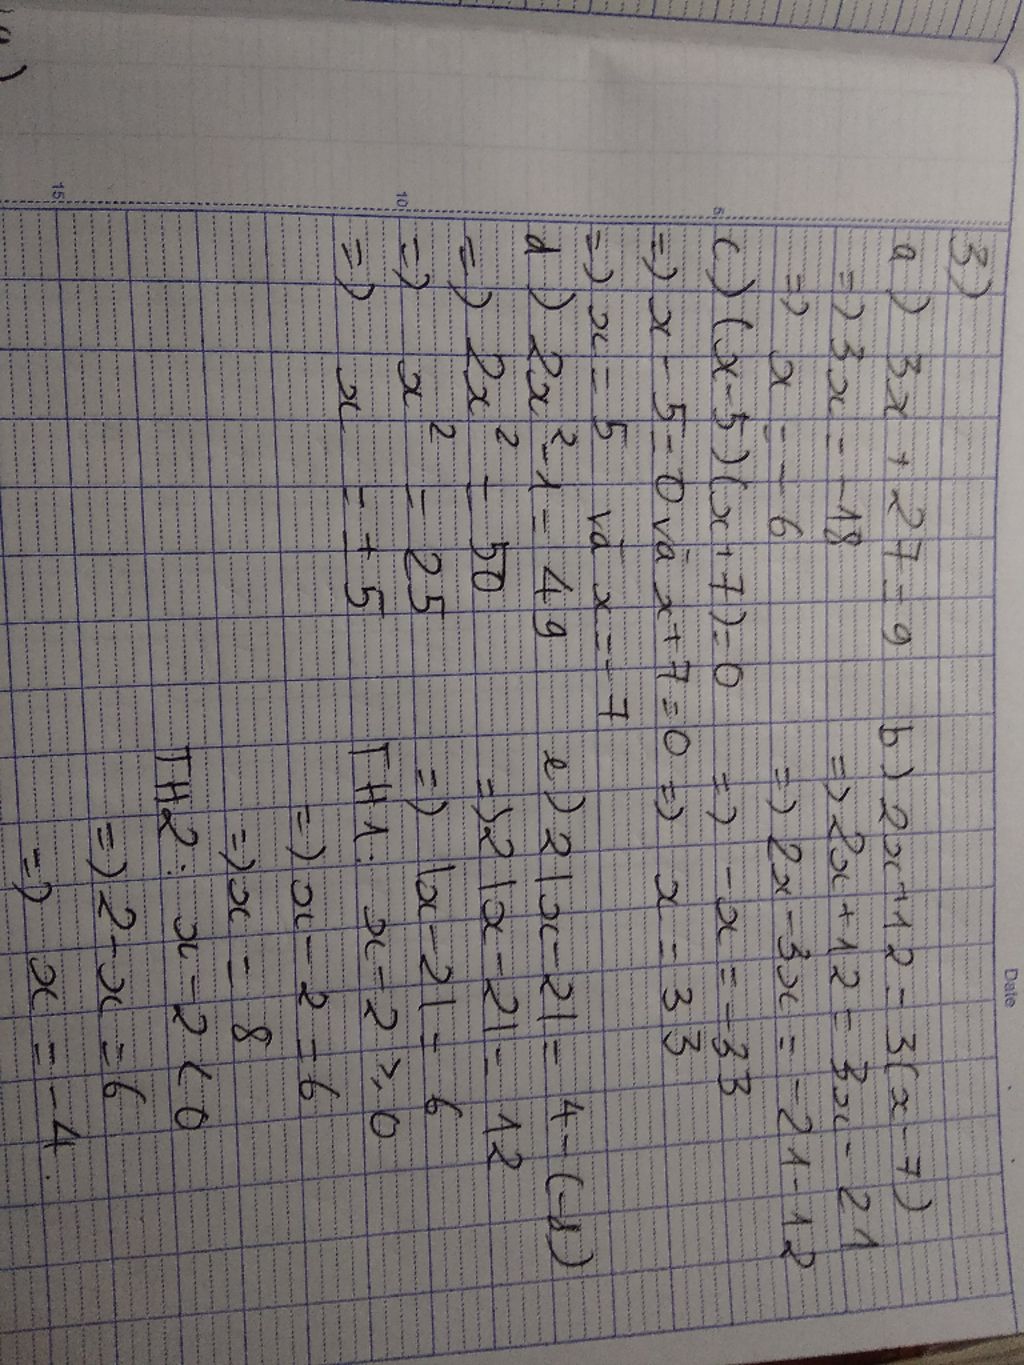 Date
3)
a) 3x + 27 = 9
=) 3x = -18
=) x = - 6
b) 2x+12 = 3(x-7)
=) 2x+12 = 3x - 21
=) 2x-3x = -21-12
=) -x = -33
=) x = 33
c) (x-5)(x+7)=0
=) x - 5=0 và x+7=0
=) x = 5 và x = -7
d) 2x²-1 = 49
=) 2x² = 50
=) x² = 25
=) x = ± 5
e) 2|x-2| = 4-(-8)
=) 2|x-2| = 12
=) |x-2| = 6
TH1: x-2 ⩾ 0
=) x-2 = 6
=) x = 8
TH2: x-2 < 0
=) 2-x = 6
=) x = -4
5
10
15